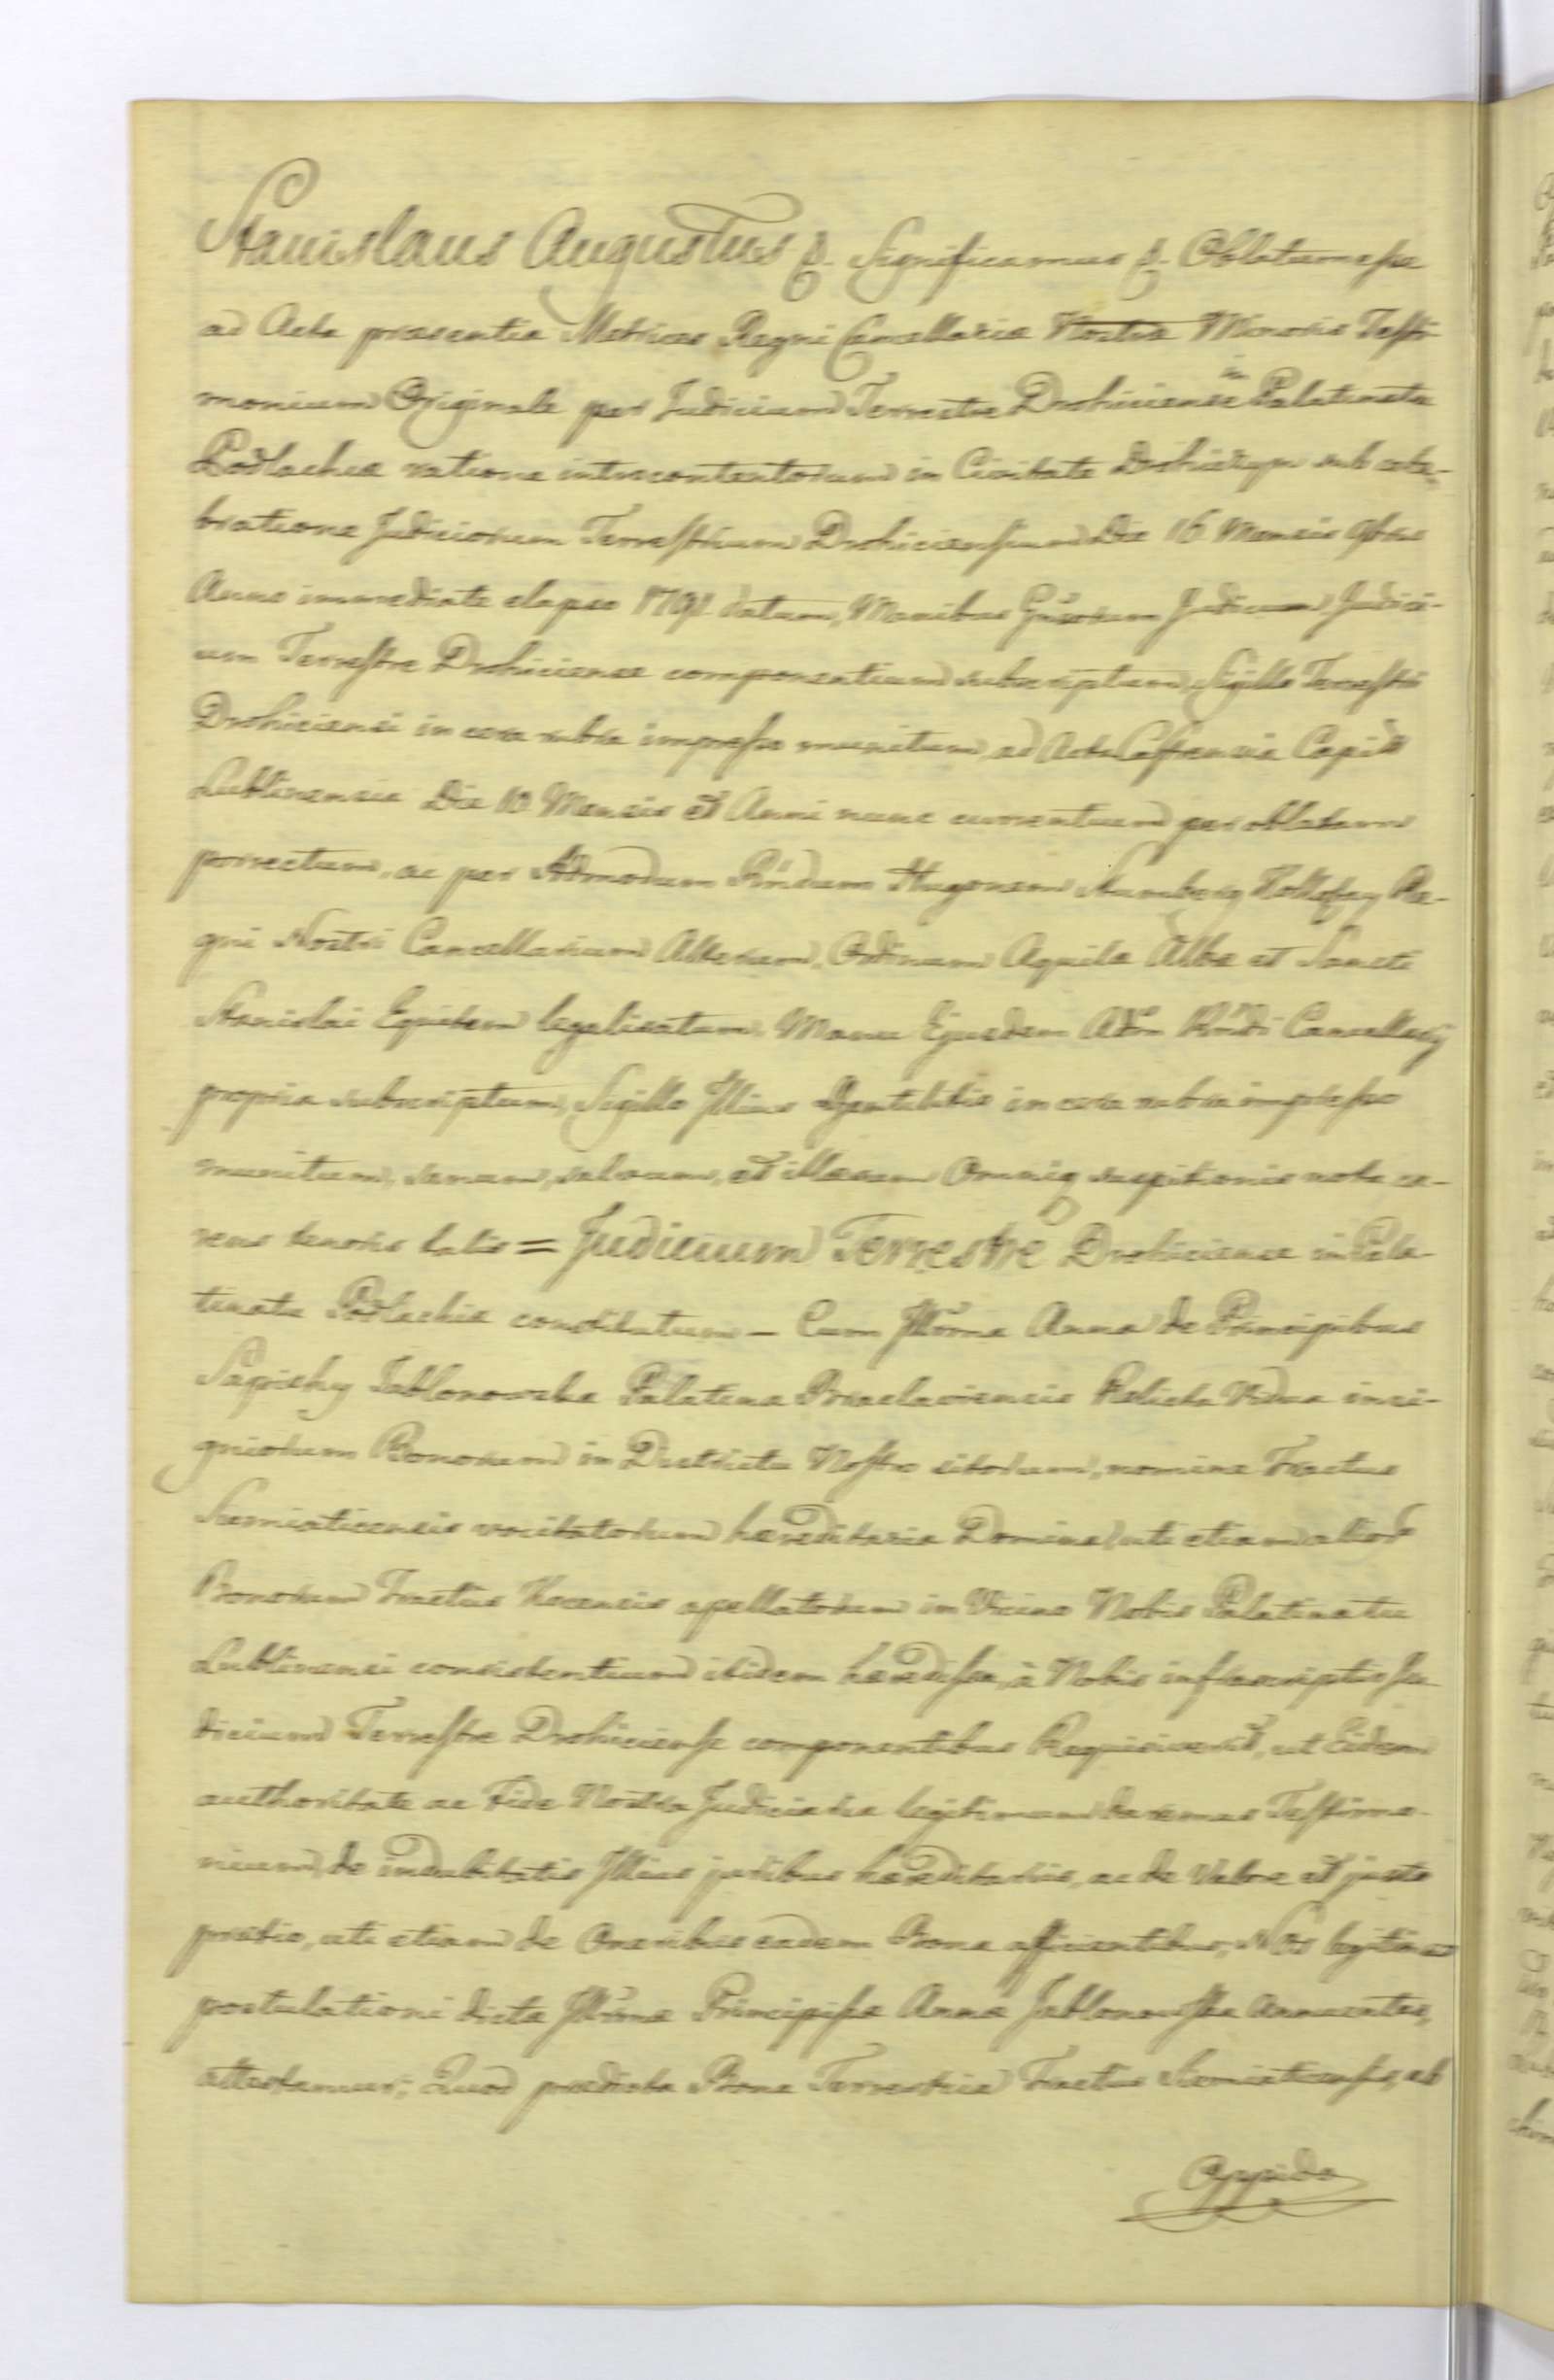 Stanislaus Augustus &. Significamus &. Oblatum esse
ad Acta præsentia Metrices Regni Cancellariæ Nostræ Minoris Testi
monium Originale per Judicium Terrestre Drohiciense in Palatinatu
Podlachiæ ratione introcontentorum in Civitate Drohiczyn sub cele-
bratione Judiciorum Terrestrium Drohiciensium Die 16 Mensis 9bris
Anno immediate elapso 1791. datum, Manibus Judicum Judici-
um Terrestre Drohiciense componentium subscriptum, Sigillo Terrestri
Drohiciensi in cera rubra impresso munitum, ad Acta Castrensia Capit̃
Lublinensia Die 10 Mensis et Anni nunc currentium per oblatam
porrectum, ac per Admodum Rñdum Hugonem Stumberg Kołłątay Re-
gni Nostri Cancellarium Alterum, Ordinum Aquilæ Albæ et Sancti
Stanislai Equitem legalisatum, Manu Ejusdem Adm̃ Rñdi Cancellarij
propria subscriptum, Sigillo Illius Gentilitio in cera rubra impresso
munitum, sanum, salvum, et illæsum Omniq suspitionis nota ca-
rens tenoris talis = Judicium Terrestre Drohiciense in Pala-
tinatu Podlachiæ constitutum – Cum Illma Anna de Principibus
Sapiehy Jabłonowska Palatina Braclaviensis Relicta Vidua insi-
gniorum Bonorum in Districtu Nostro sitorum, nomine Tractus
Siemiaticensis vocitatorum hæreditaria Domina, uti etiam alior̃
Bonorum Tractus Kocensis apellatorum in Vicino Nobis Palatinatu
Lublinensi consistentium ibidem hæredissa, à Nobis infrascriptis Ju
dicium Terrestre Drohiciense componentibus Requisiverit, ut Eidem
authoritate ac Fide Nostra Judiciaria legitimum daremus Testimo-
nium, de indubitatis Illius juribus hæreditariis, ac de Valore et justo
pretio, uti etiam de Oneribus eadem Bona afficientibus, Nos legitimæ
postulationi dictæ Illmæ Principissæ Annæ Jabłonowska Annuentes,
attestamur; Quod prædicta Bona Terrestria Tractus Siemiaticensis, ab
Oppido